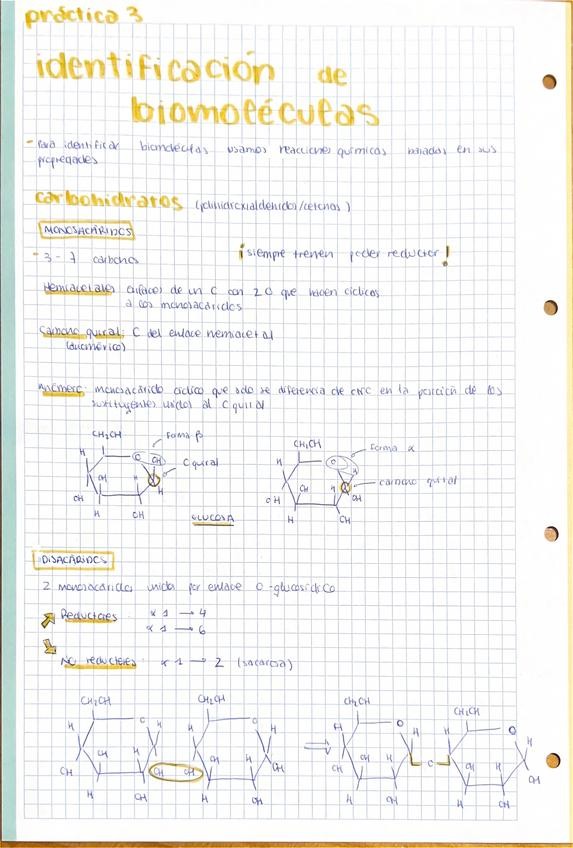 práctica 3
identificación de
biomoléculas
- Para identificar biomoléculas usamos reacciones químicas basadas en sus
propiedades
carbohidratos (polihidroxialdehidos/cetonas)
MONOSACÁRIDOS
- 3 - 7 carbonos ¡siempre tienen poder reductor!
Hemiacetales: enlaces de un C con 2 O que hacen cíclicos
a los monosacáridos
Carbono quiral: C del enlace hemiacetal
(anomérico)
Anómero: monosacárido cíclico que solo se diferencia de otro en la posición de los
sustituyentes unidos al C quiral
CH2OH forma β CH2OH forma α
H O OH C quiral H O H
OH H H OH H carbono quiral
OH H OH OH
H OH GLUCOSA H OH
DISACÁRIDOS
2 monosacáridos unidos por enlace O-glucosídico
Reductores: α 1 → 4
α 1 → 6
NO reductores: α 1 → 2 (sacarosa)
CH2OH CH2OH CH2OH CH2OH
H O H H O H H O H H O H
OH H OH H OH H OH H
OH OH OH OH OH O OH
H OH H OH H OH H OH